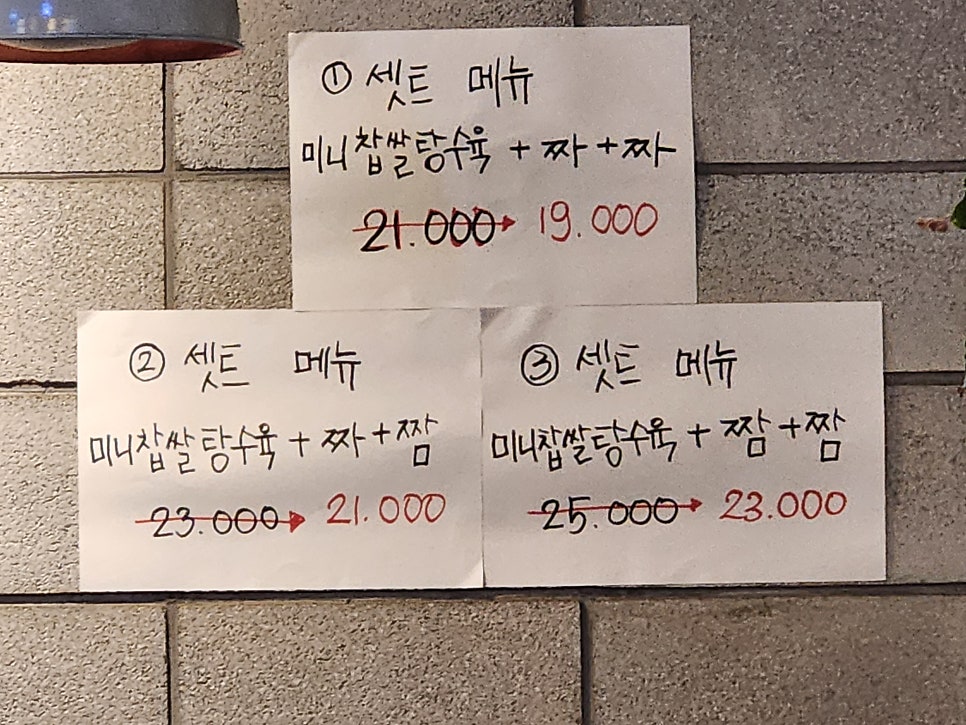 ① 셋트 메뉴
미니찹쌀탕수육 + 짜 + 짜
21.000 → 19.000
② 셋트 메뉴
미니찹쌀탕수육 + 짜 + 짬
23.000 → 21.000
③ 셋트 메뉴
미니찹쌀탕수육 + 짬 + 짬
25.000 → 23.000